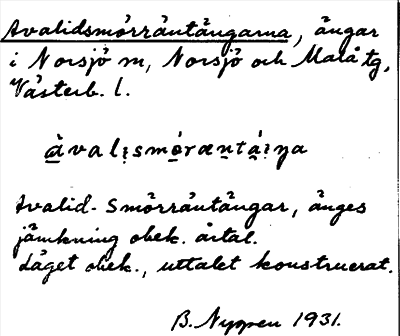 Avalidsmörräntängarna, ängar
i Norsjö sn, Norsjö och Malå tg,
Västerb. l.
àvalịsmọ́ræntá̱ịŋa
Avalid- Smörräntängar, änges
jämkning obek. årtal.
Läget obek., uttalet konstruerat.
B. Nygren 1931.